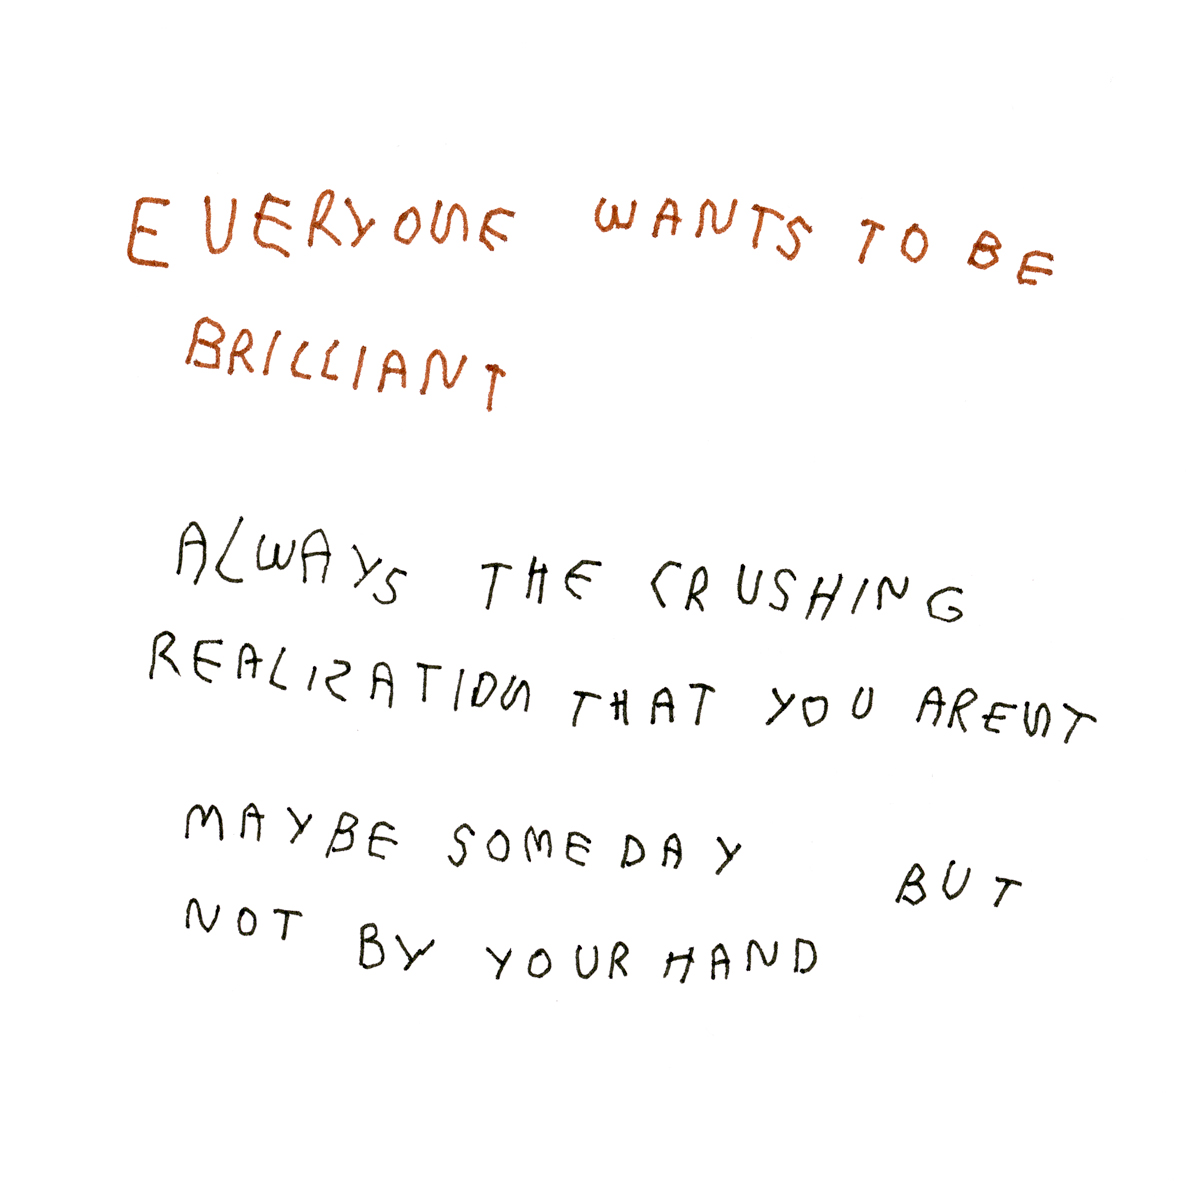 EVERYONE WANTS TO BE
BRILLIANT
ALWAYS THE CRUSHING
REALIZATION THAT YOU ARENT
MAYBE SOMEDAY BUT
NOT BY YOUR HAND